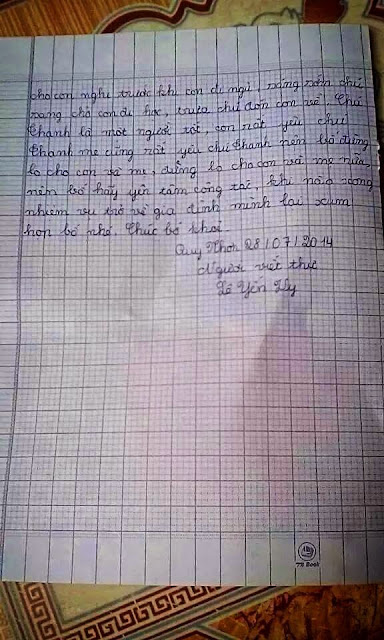 cho con nghỉ trước khi con đi ngủ, sáng sớm chú
sang chở con đi học, trưa chú đón con về. Chú
Thành là một người tốt, con rất yêu chú
Thành mẹ cũng rất yêu chú Thành nên bố đừng
lo cho con và mẹ, đừng lo cho con và mẹ nữa
nên bố hãy yên tâm công tác, khi nào xong
nhiệm vụ trở về gia đình mình lại xum
họp bố nhé. Chúc bố khỏe
Quy Nhơn 28/07/2014
Người viết thư
Lê Yến
72 Book